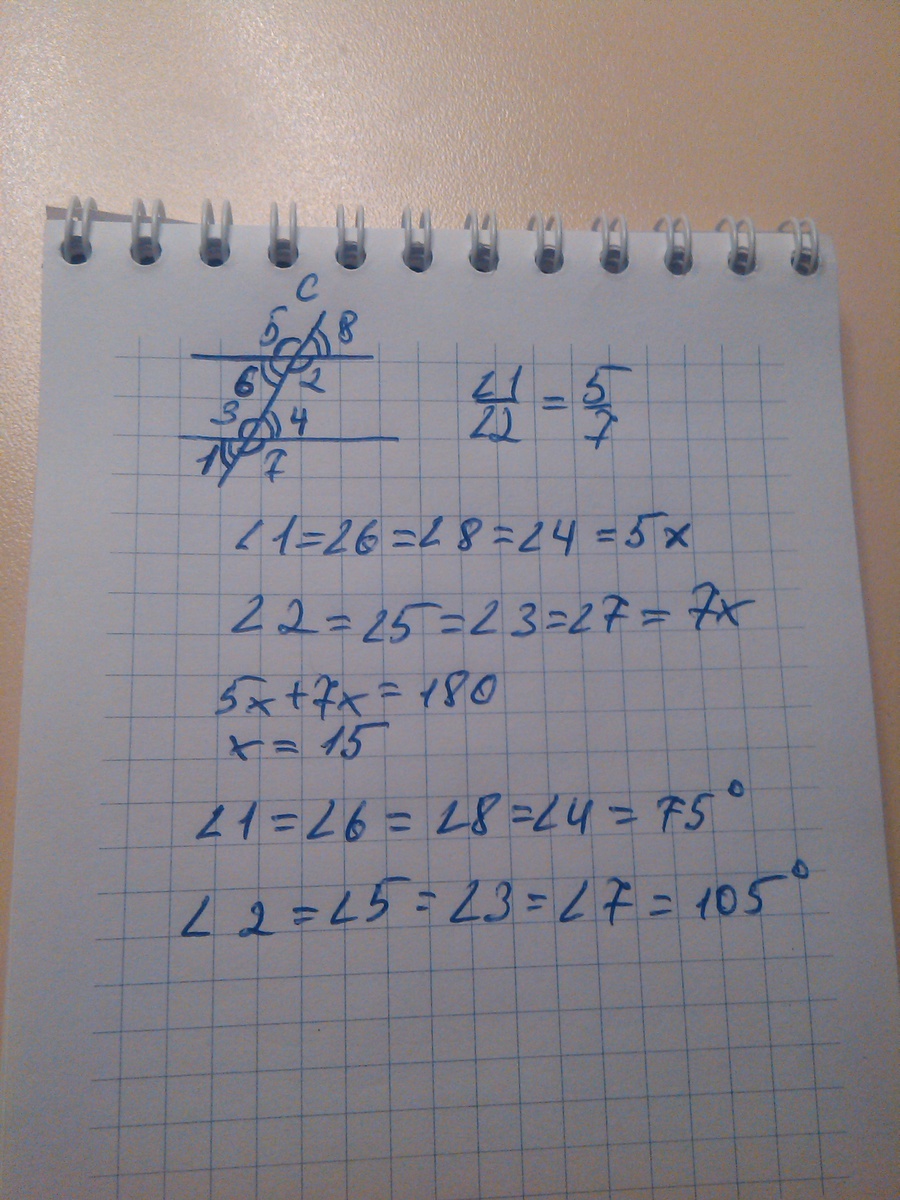 c
5 8
6 2
3 4
1 7
∠1/∠2 = 5/7
∠1=∠6=∠8=∠4=5x
∠2=∠5=∠3=∠7=7x
5x+7x=180
x=15
∠1=∠6=∠8=∠4=75°
∠2=∠5=∠3=∠7=105°